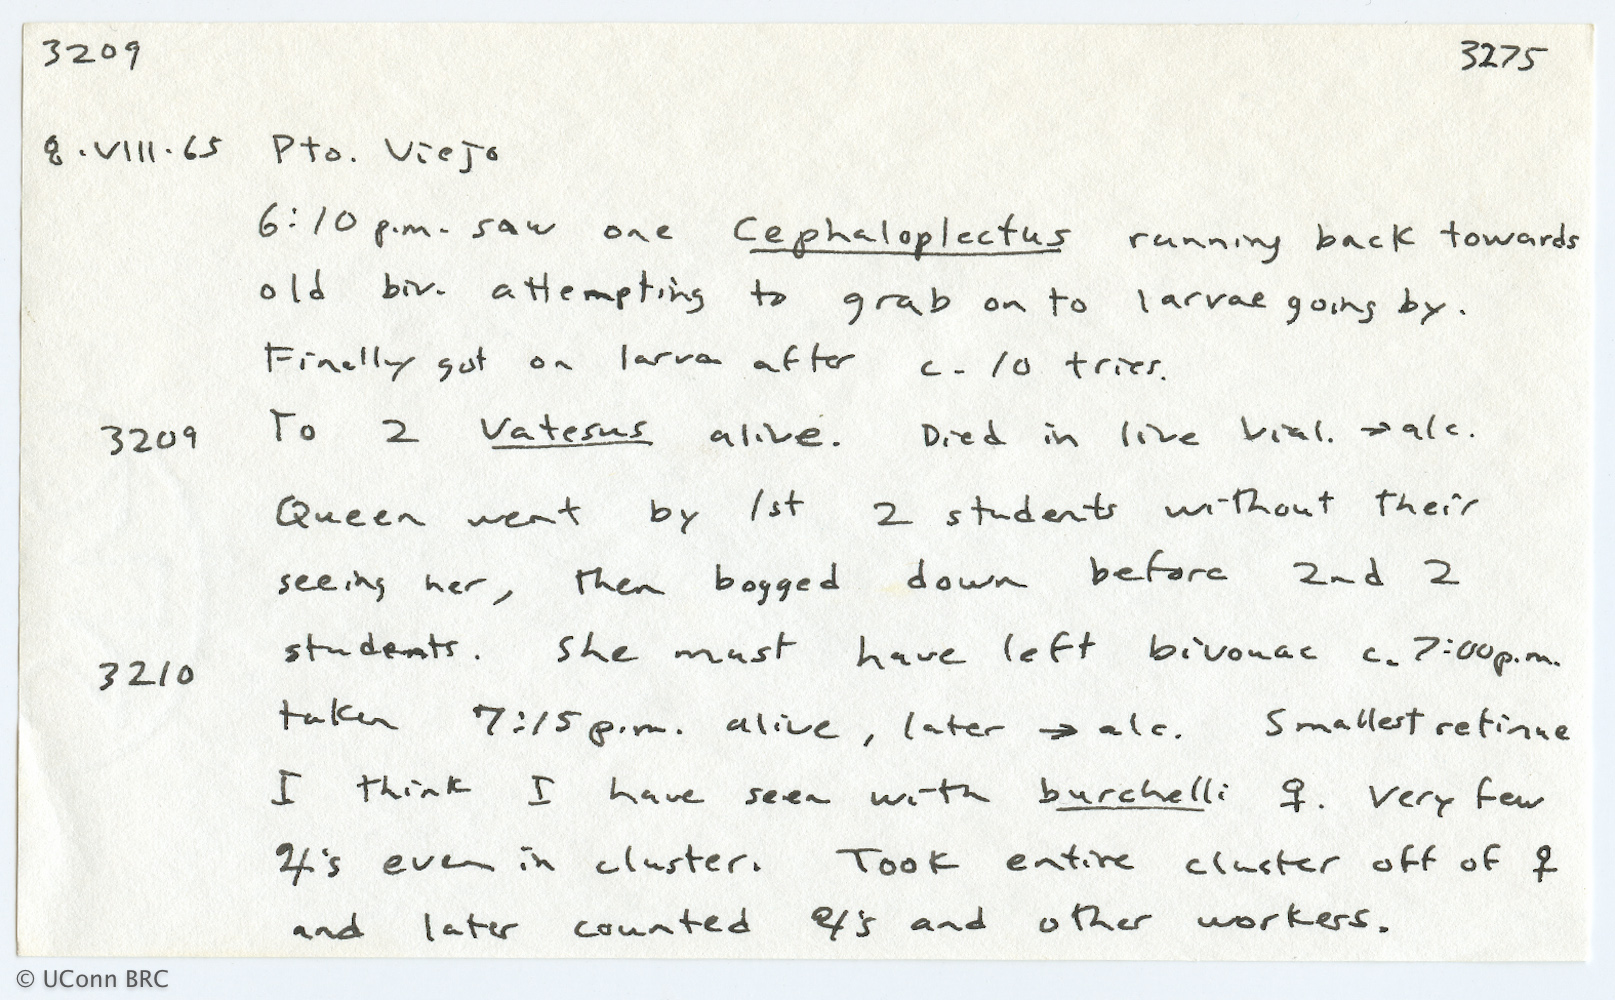 3209 3275
8.VIII.65 Pto. Viejo
6:10 p.m. saw one Cephaloplectus running back towards
old biv. attempting to grab on to larvae going by.
Finally got on larva after c. 10 tries.
3209 To 2 Vatesus alive. Died in live vial. → alc.
Queen went by 1st 2 students without their
seeing her, then bogged down before 2nd 2
students. She must have left bivouac c. 7:00 p.m.
3210 taken 7:15 p.m. alive, later → alc. Smallest retinue
I think I have seen with burchelli ♀. Very few
♃'s even in cluster. Took entire cluster off of ♀
and later counted ♃'s and other workers.
© UConn BRC